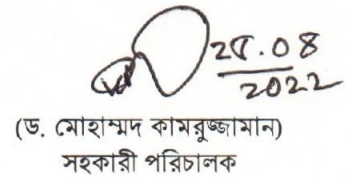 ২৫.০৪
২০২২
(ড. মোহাম্মদ কামরুজ্জামান)
সহকারী পরিচালক